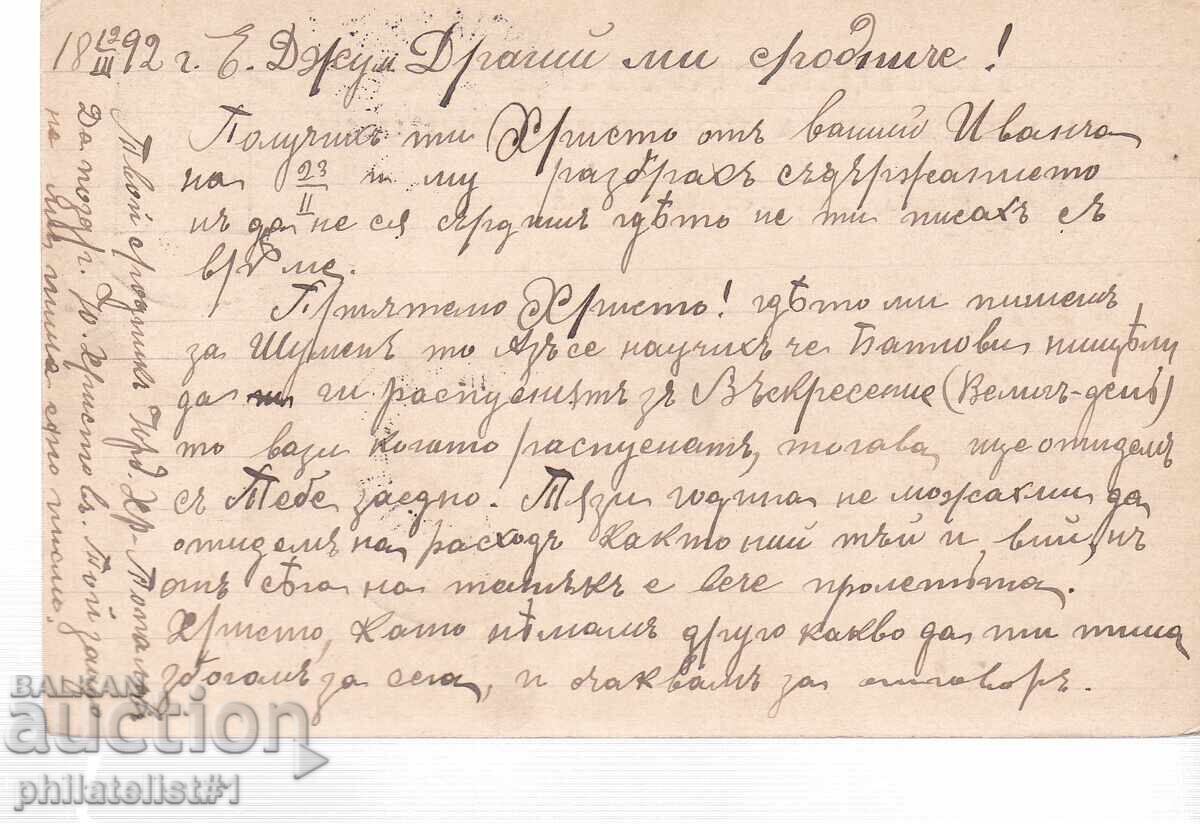 18 12/III 92 г. Е. Джум. Драгий ми сродниче!
Получихъ ти Христо отъ ваший Иванча
на 23/II и му разбрахъ съдържанието
нъ да не ся сърдиш гдѣто не ти писахъ съ
врѣме.
Приятелю Христо! гдѣто ми пишешъ
за Шуменъ то Азъ се научихъ че Батиови
да ги распуснатъ зъ Въскресение (Великъ-день)
то вази когато распуснатъ, тогава ще отидемъ
съ Тебе заедно. Тѫзи година не можахми да
отидемъ на расходъ както ний тъй и вий, нъ
отъ сѣга на татъкъ е вече пролѣтьта.
Христо, като нѣмамъ друго какво да ти пиша
збогомъ за сега, и очаквамъ за отговоръ.
Твой сродникъ Йрд. Хр.
Да поздр. Ю. Христовъ. Той защо
не ми пиша ено писмо.
BALKAN
auction
philatelist#1